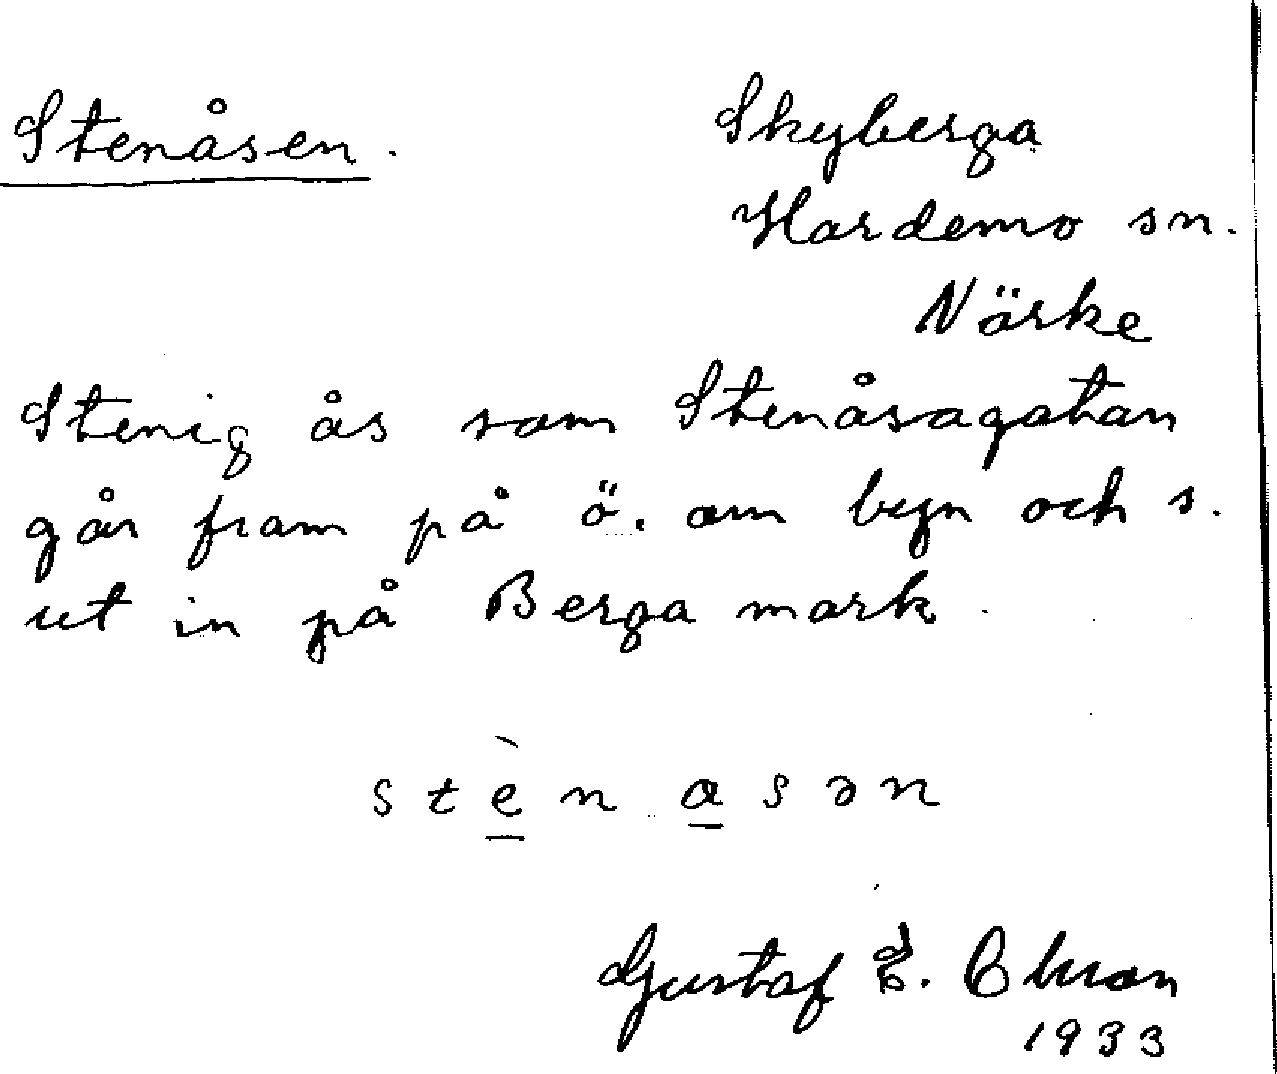 Stenåsen.
Skyberga
Hardemo sn.
Närke
Stenig ås som Stenåsagatan
går fram på ö. om byn och s.
ut in på Berga mark.
stènɑsən
Gustaf
1933